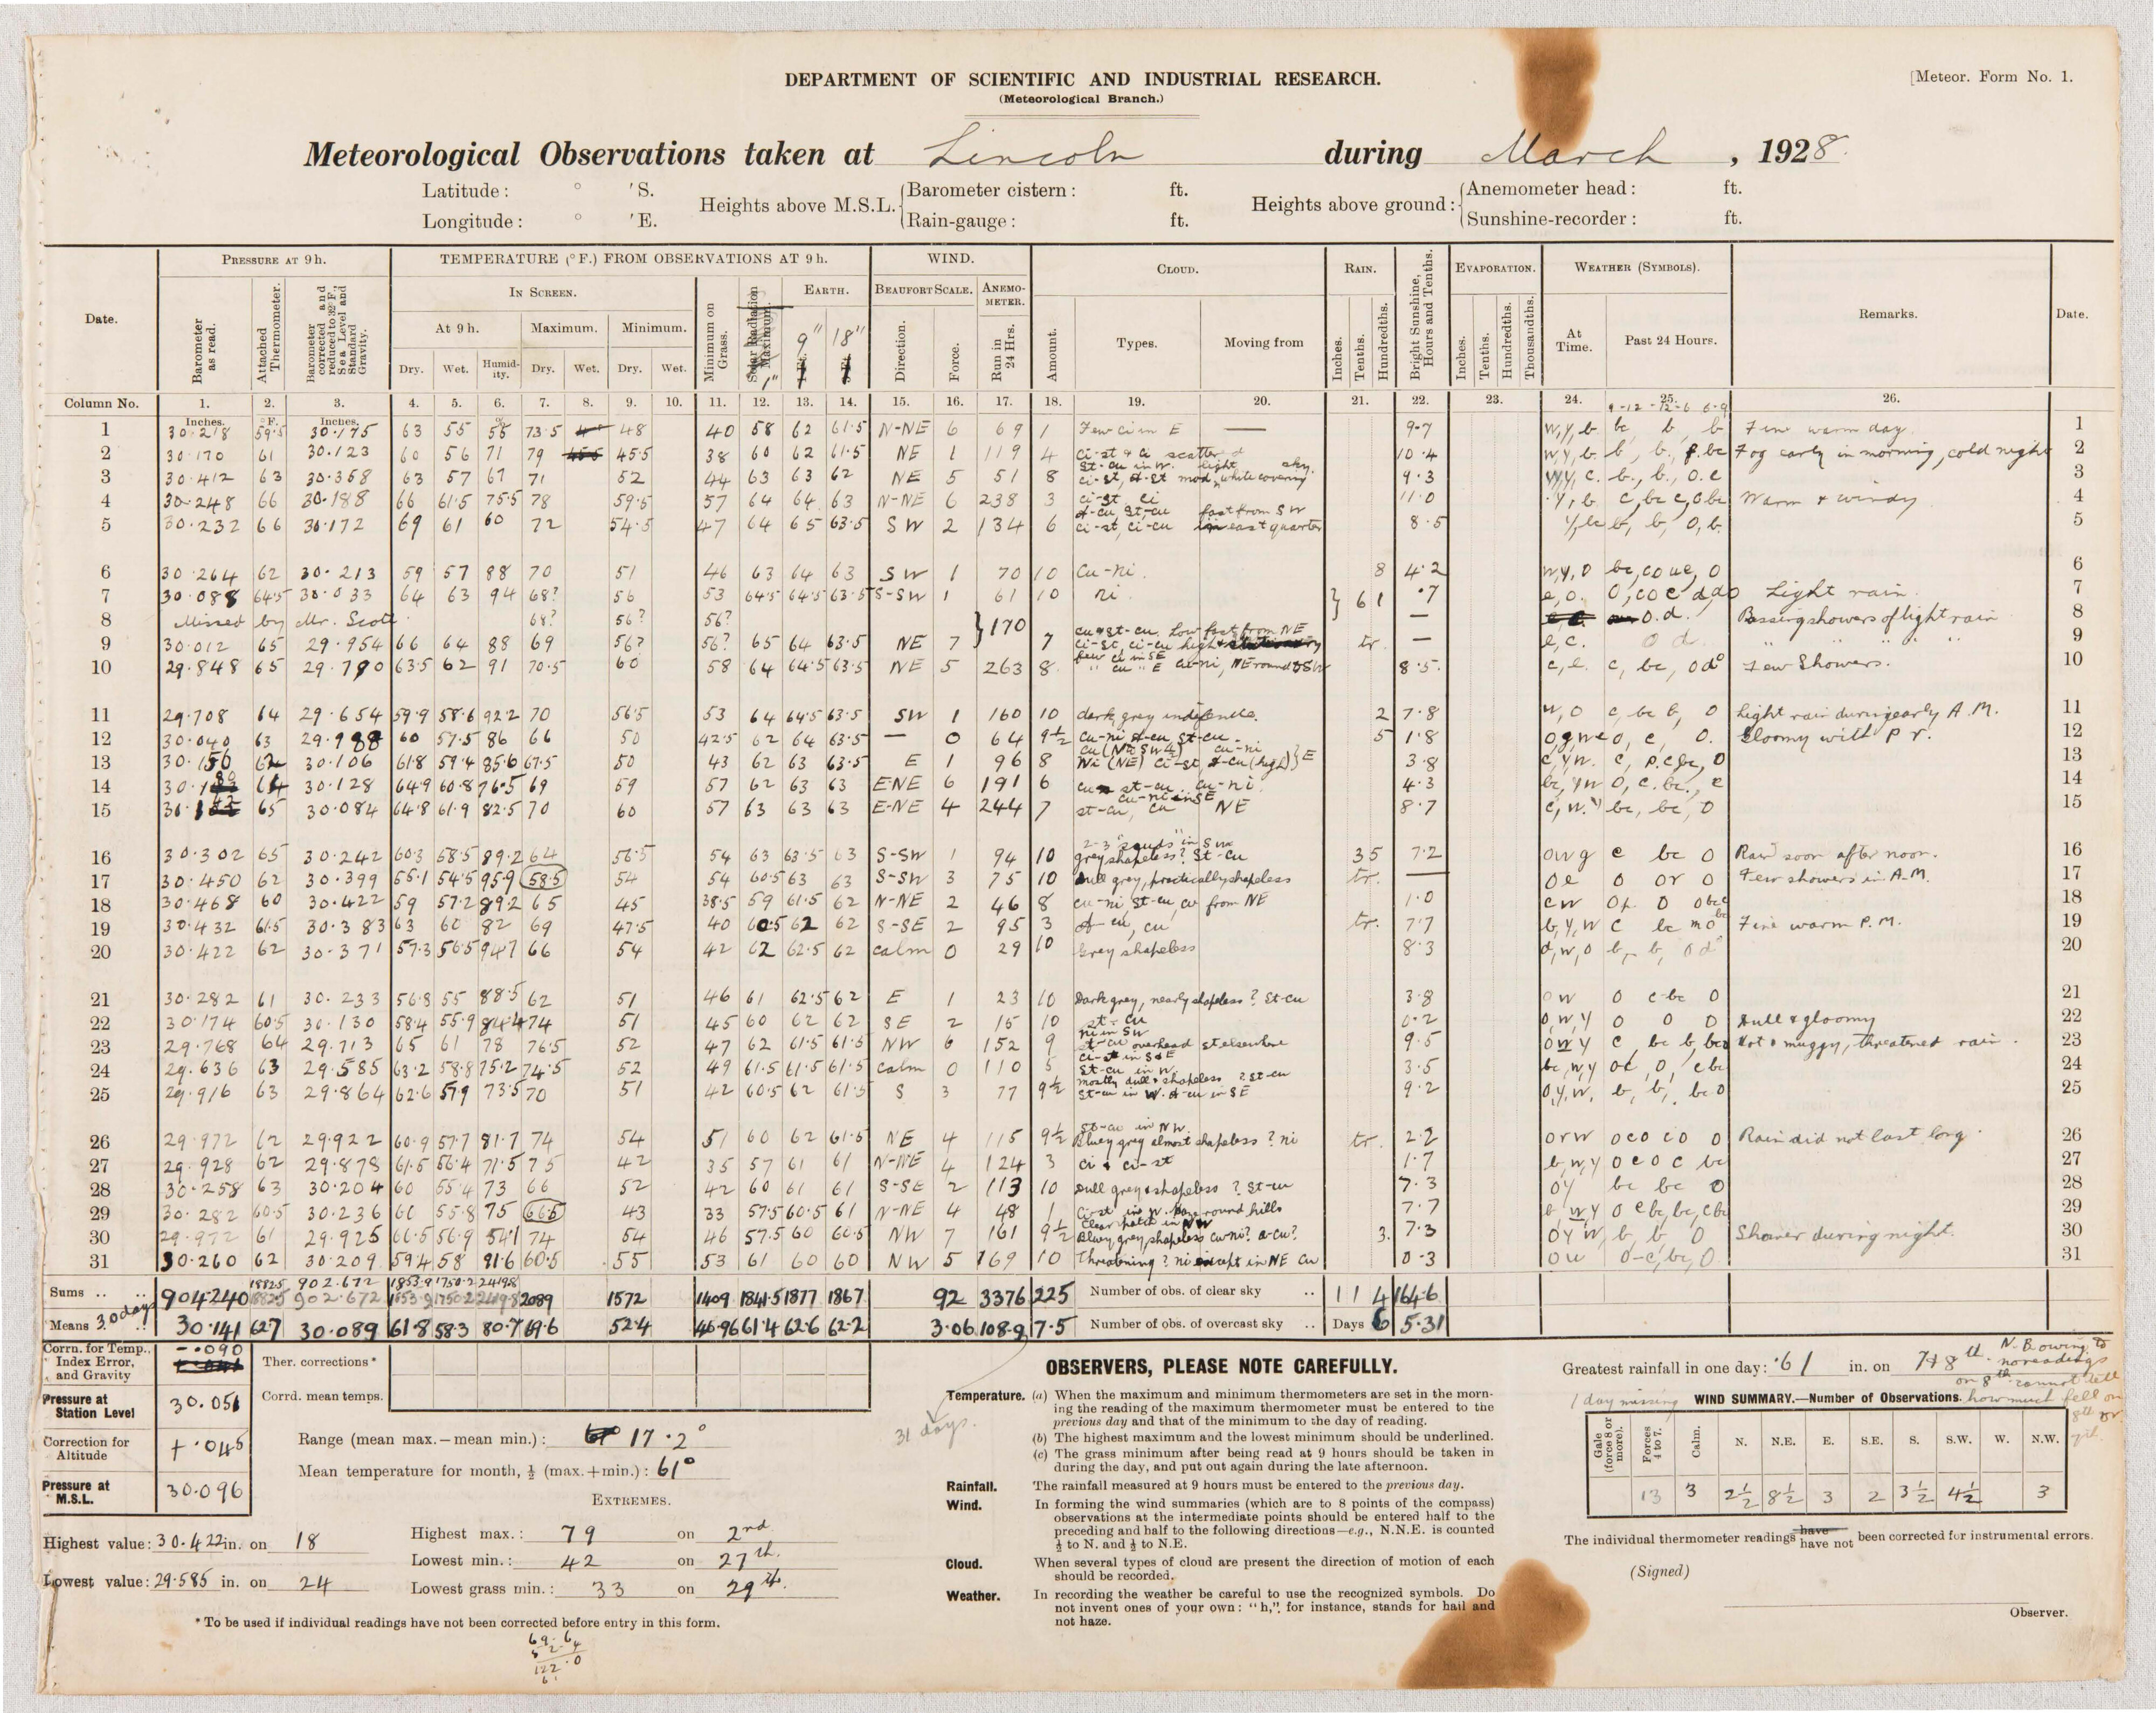 [Meteor. Form No. 1.
DEPARTMENT OF SCIENTIFIC AND INDUSTRIAL RESEARCH.
(Meteorological Branch.)
Meteorological Observations taken at Lincoln during March, 1928.
Latitude: ° ′ S. Heights above M.S.L. Barometer cistern: ft. Heights above ground: Anemometer head: ft.
Longitude: ° ′ E. Rain-gauge: ft. Sunshine-recorder: ft.
Date. PRESSURE AT 9 h. TEMPERATURE (° F.) FROM OBSERVATIONS AT 9 h. WIND. CLOUD. RAIN. Bright Sunshine, Hours and Tenths. EVAPORATION. WEATHER (SYMBOLS). Remarks. Date.
Barometer as read. Attached Thermometer. Barometer corrected and reduced to 32° F., Sea Level and Standard Gravity. IN SCREEN. Minimum on Grass. Solar Radiation Maximum. 1" EARTH. 9" 18" BEAUFORT SCALE. ANEMO-METER.
At 9 h. Maximum. Minimum. Direction. Force. Run in 24 Hrs. Amount. Types. Moving from Inches. Tenths. Hundredths. Inches. Tenths. Hundredths. Thousandths. At Time. Past 24 Hours.
Dry. Wet. Humid-ity. Dry. Wet. Dry. Wet.
Column No. 1. 2. 3. 4. 5. 6. 7. 8. 9. 10. 11. 12. 13. 14. 15. 16. 17. 18. 19. 20. 21. 22. 23. 24. 25. 26.
Inches. °F. Inches. % 9-12 - 12-6 6-9
1 30.218 59.5 30.175 63 55 58 73.5 48 40 58 62 61.5 N-NE 6 69 1 Few ci in E — 9.7 w,y,b bc b, b Fine warm day. 1
2 30.170 61 30.123 60 56 71 79 45.5 38 60 62 61.5 NE 1 119 4 ci-st & ci scattered 10.4 w,y,b b, b, f.bc Fog early in morning, cold night 2
3 30.412 63 30.358 63 57 67 71 52 44 63 63 62 NE 5 51 8 St-cu in W. light sky. ci-st, A-st mod, white covering 9.3 c. b., b., o.c 3
4 30.248 66 30.188 66 61.5 75.5 78 59.5 57 64 64 63 N-NE 6 238 3 ci-st, ci 11.0 y, b c, bc c, o bc Warm & windy 4
5 30.232 66 30.172 69 61 60 72 54.5 47 64 65 63.5 SW 2 134 6 A-cu, st-cu fast from SW ci-st, ci-cu in east quarter 8.5 b, b, o, b. 5
6 30.264 62 30.213 59 57 88 70 51 46 63 64 63 SW 1 70 10 Cu-ni. 8 4.2 w,y,o bc, co ue, o 6
7 30.088 64.5 30.033 64 63 94 68? 56 53 64.5 64.5 63.5 S-SW 1 61 10 ni. 61 .7 e, o. o, co c d, do Light rain 7
8 Missed by Mr. Scott 68? 56? 56? 170 — o.d. Passing showers of light rain 8
9 30.012 65 29.954 66 64 88 69 56? 56? 65 64 63.5 NE 7 7 cu & st-cu. Low fast from NE ci-st, ci-cu high tr. — e, c. o d. " " " " 9
10 29.848 65 29.790 63.5 62 91 70.5 60 58 64 64.5 63.5 NE 5 263 8 few ci in SE " cu " E cu-ni, NE round to SW 8.5 c, e. c, bc, od° Few Showers. 10
11 29.708 64 29.654 59.9 58.6 92.2 70 56.5 53 64 64.5 63.5 SW 1 160 10 dark, grey indefinite. 2 7.8 w, o c, bc b, o Light rain during early A.M. 11
12 30.040 63 29.988 60 57.5 86 66 50 42.5 62 64 63.5 — 0 64 9½ Cu-ni A-cu, st-cu. 5 1.8 o, c, o. Gloomy with P r. 12
13 30.156 62 30.106 61.8 59.4 85.6 67.5 50 43 62 63 63.5 E 1 96 8 cu (NE SW) cu-ni Ni (NE) ci-st, A-cu (high) E 3.8 c, yw. 13
14 64 30.128 64.9 60.8 76.5 69 59 57 62 63 63 E-NE 6 191 6 cu st-cu. cu-ni. 4.3 bc, yw o, c. bc., c 14
15 65 30.084 64.8 61.9 82.5 70 60 57 63 63 63 E-NE 4 244 7 cu-ni in SE st-cu, cu NE 8.7 c, w. bc, bc, o 15
16 30.302 65 30.242 60.3 58.5 89.2 64 56.5 54 63 63.5 63 S-SW 1 94 10 grey shapeless? St-cu 35 7.2 owg c bc o Rain soon after noon. 16
17 30.450 62 30.399 55.1 54.5 95.9 58.5 54 54 60.5 63 63 S-SW 3 75 10 Dull grey, practically shapeless tr. — oe o or o Few showers in A.M. 17
18 30.468 60 30.422 59 57.2 89.2 65 45 38.5 59 61.5 62 N-NE 2 46 8 cu-ni st-cu, cu from NE 1.0 cw o 18
19 30.432 61.5 30.383 63 60 82 69 47.5 40 60.5 62 62 S-SE 2 95 3 A-cu, cu tr. 7.7 b, y, w c bc mo Fine warm P.M. 19
20 30.422 62 30.371 57.3 56.5 94.7 66 54 42 62 62.5 62 calm 0 29 10 Grey shapeless 8.3 d, w, o b, b, od° 20
21 30.282 61 30.233 56.8 55 88.5 62 51 46 61 62.5 62 E 1 23 10 Dark grey, nearly shapeless? St-cu 3.8 ow o c-bc o 21
22 30.174 60.5 30.130 58.4 55.9 84.4 74 51 45 60 62 62 SE 2 15 10 st-cu 0.2 o,w,y o o o Dull & gloomy 22
23 29.768 64 29.713 65 61 78 76.5 52 47 62 61.5 61.5 NW 6 152 9 ni in SW st-cu overhead st elsewhere 9.5 owy c bc b, bco Hot & muggy, threatened rain. 23
24 29.636 63 29.585 63.2 58.8 75.2 74.5 52 49 61.5 61.5 61.5 calm 0 110 5 ci-st in S & E St-cu in W. 3.5 bc, w, y oc, o, c bc 24
25 29.916 63 29.864 62.6 57.9 73.5 70 51 42 60.5 62 61.5 S 3 77 9½ mostly dull & shapeless ? st-cu St-cu in W. A-cu in SE 9.2 o,y,w, b, b, bc o 25
26 29.972 62 29.922 60.9 57.7 81.7 74 54 51 60 62 61.5 NE 4 115 9½ St-cu in NW. Bluey grey almost shapeless? ni tr. 2.2 orw oco co o Rain did not last long. 26
27 29.928 62 29.878 61.5 56.4 71.5 75 42 35 57 61 61 N-NE 4 124 3 ci & ci-st 1.7 b,w,y oco c bc 27
28 30.258 63 30.204 60 55.4 73 66 52 42 60 61 61 S-SE 2 113 10 Dull grey & shapeless ? St-cu 7.3 oy bc bc o 28
29 30.282 60.5 30.236 60 55.8 75 66.5 43 33 57.5 60.5 61 N-NE 4 48 1 Ci-st in W. haze round hills 7.7 b wy o cbc, bc, cbc 29
30 29.972 61 29.925 66.5 56.9 54.1 74 54 46 57.5 60 60.5 NW 7 161 9½ Clear patch in NW Bluey, grey, shapeless cu-ni? a-cu? 3. 7.3 oyw, b, b o Shower during night. 30
31 30.260 62 30.209 59.4 58 91.6 60.5 55 53 61 60 60 NW 5 169 10 Threatening? ni except in NE Cu 0.3 ou o-c, bc, o 31
1882.5 902.672 1853.9 1750.2 2419.8
Sums .. .. 904.240 1882.5 902.672 1853.9 1750.2 2419.8 2089 1572 1409 1841.5 1877 1867 92 3376 225 Number of obs. of clear sky .. 1 1 4 164.6
Means 30 days .. 30.141 62.7 30.089 61.8 58.3 80.7 69.6 52.4 46.96 61.4 62.6 62.2 3.06 108.9 7.5 Number of obs. of overcast sky .. Days 6 5.31
Corrn. for Temp., Index Error, and Gravity -.090
Ther. corrections*
Pressure at Station Level 30.051
Corrd. mean temps.
Correction for Altitude +.045
Range (mean max. — mean min.): 17.2°
Mean temperature for month, ½ (max. + min.): 61°
Pressure at M.S.L. 30.096
EXTREMES.
Highest value: 30.422 in. on 18
Highest max.: 79 on 2nd
Lowest min.: 42 on 27th.
Lowest value: 29.585 in. on 24
Lowest grass min.: 33 on 29th.
* To be used if individual readings have not been corrected before entry in this form.
69.6
52.4
122.0
61
31 days.
OBSERVERS, PLEASE NOTE CAREFULLY.
Temperature. (a) When the maximum and minimum thermometers are set in the morn-
ing the reading of the maximum thermometer must be entered to the
previous day and that of the minimum to the day of reading.
(b) The highest maximum and the lowest minimum should be underlined.
(c) The grass minimum after being read at 9 hours should be taken in
during the day, and put out again during the late afternoon.
Rainfall. The rainfall measured at 9 hours must be entered to the previous day.
Wind. In forming the wind summaries (which are to 8 points of the compass)
observations at the intermediate points should be entered half to the
preceding and half to the following directions—e.g., N.N.E. is counted
½ to N. and ½ to N.E.
Cloud. When several types of cloud are present the direction of motion of each
should be recorded.
Weather. In recording the weather be careful to use the recognized symbols. Do
not invent ones of your own: "h," for instance, stands for hail and
not haze.
Greatest rainfall in one day: .61 in. on 7 & 8th. N.B owing to no readings on 8th cannot tell how much fell on 8th or 7th.
1 day missing WIND SUMMARY.—Number of Observations.
Gale (force 8 or more). Forces 4 to 7. Calm. N. N.E. E. S.E. S. S.W. W. N.W.
13 3 2½ 8½ 3 2 3½ 4½ 3
The individual thermometer readings have have not been corrected for instrumental errors.
(Signed)
Observer.